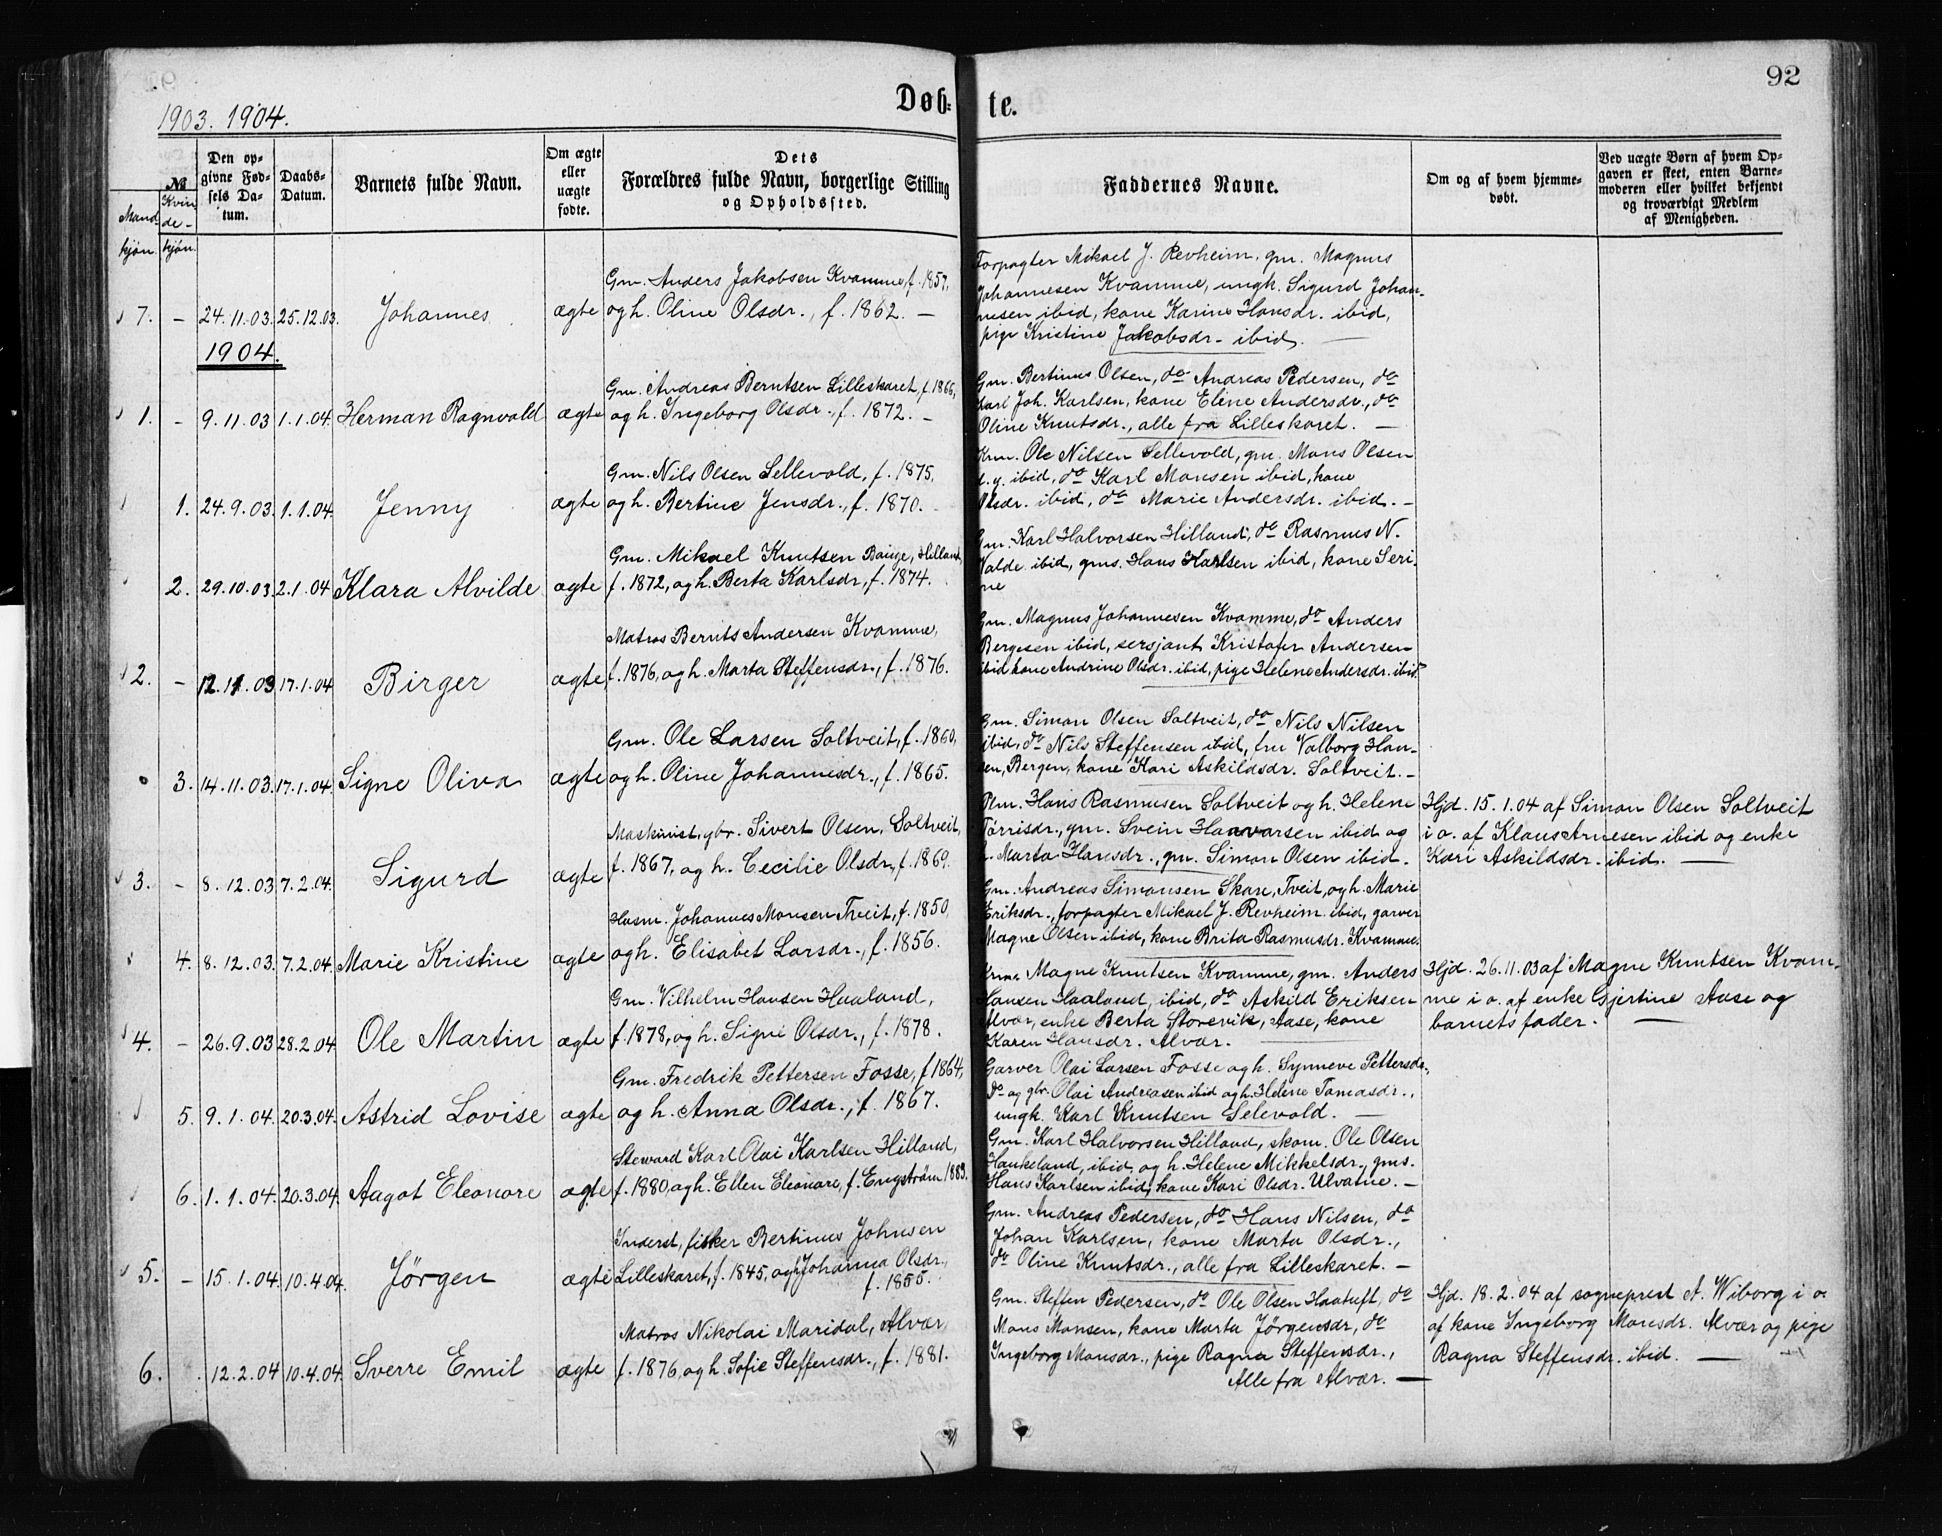 92
1903. 1904.
Døb-
te.
№
Mand-
kjøn.
Kvin
de-
kjøn.
Den op-
givne Fød-
sels Da-
tum.
Daabs-
Datum.
Barnets fulde Navn.
Om ægte
eller
uægte
fødte.
Dets
Forældres fulde Navn, borgerlige Stilling
og Opholdssted.
Faddernes Navne.
Om og af hvem hjemme-
døbt.
Ved uægte Børn af hvem Op-
gaven er skeet, enten Barne-
moderen eller hvilket bekjendt
og troværdigt Medlem
af Menigheden.
7. – 24.11.03. 25.12.03. Johannes ægte
Gm. Anders Jakobsen Kvamme, f. 1857,
og h. Oline Olsdr., f. 1862. –
Forpagter Mikael J. Revheim, gm. Magnus
Johannesen Kvamme, ungk. Sigurd Johan-
nesen ibid, kone Karine Hansdr. ibid,
pige Kristine Jakobsdr. ibid. –
1904.
1. – 9.11.03 1.1.04. Herman Ragnvald ægte
Gm. Andreas Berntsen Lilleskaret, f. 1866,
og h. Ingeborg Olsdr., f. 1872. –
Gm. Bertinus Olsen, do Andreas Pedersen, do
Karl Joh. Karlsen, kone Eline Andersdr., do
Oline Knutsdr., alle fra Lilleskaret. –
1. 24.9.03. 1.1.04. Jenny ægte
Gm. Nils Olsen Sellevold, f. 1875,
og h. Bertine Jensdr., f. 1870.
Krm. Ole Nilsen Sellevold, gm. Mons Olsen
d.y. ibid, do Karl Monsen ibid, kone
Olsdr. ibid, do Marie Andersdr. ibid. –
2. 29.10.03. 2.1.04 Klara Alvilde ægte
Gm. Mikael Knutsen Bauge, Hilland,
f. 1872, og h. Berta Karlsdr., f. 1874.
Gm. Karl Halvorsen Hilland, do Rasmus N.
Valde ibid, gms. Hans Karlsen ibid, kone Seri-
ne
2. – 12.11.03 17.1.04 Birger ægte
Matros Bernts Andersen Kvamme,
f. 1876, og h. Marta Steffensdr., f. 1876.
Gm. Magnus Johannesen Kvamme, do Anders
Bergesen ibid, sersjant Kristofer Andersen
ibid kone Andrine Olsdr. ibid, pige Helene Andersdr. ibid.
3. 14.11.03. 17.1.04. Signe Oliva ægte
Gm. Ole Larsen Soltveit, f. 1860,
og h. Oline Johannesdr., f. 1865.
Gm. Simon Olsen Soltveit, do Nils Nilsen
ibid, do Nils Steffensen ibid, fru Valborg Han-
sen, Bergen, kone Kari Askildsdr. Soltveit. –
3. – 8.12.03 7.2.04. Sigurd ægte
Maskinist, gbr. Sivert Olsen, Soltveit,
f. 1867, og h. Cecilie Olsdr., f. 1869.
Plm. Hans Rasmusen Soltveit og h. Helene
Tørrisdr., gm. Svein Haavarsen ibid og
h. Marta Hansdr., gm. Simon Olsen ibid.
Hjd. 15.1.04 af Simon Olsen Soltveit
i o. af Klaus Arnesen ibid og enke
Kari Askildsdr. ibid. –
4. 8.12.03. 7.2.04. Marie Kristine ægte
Husm. Johannes Monsen Tveit, f. 1850,
og h. Elisabet Larsdr., f. 1856.
Gm. Andreas Simonsen Skare, Tveit, og h. Marie
Eriksdr., forpagter Mikael J. Revheim ibid, garver
Magne Olsen ibid, kone Brita Rasmusdr. Kvamme.
4. – 26.9.03 28.2.04. Ole Martin ægte
Gm. Vilhelm Hansen Haaland,
f. 1878, og h. Signe Olsdr., f. 1878.
Magne Knutsen Kvamme, gm. Anders
Hansen Haaland, ibid, do Askild Eriksen
Alvær, enke Berta Storevik, Aase, kone
Karen Hansdr. Alvær.
Hjd. 26.11.03 af Magne Knutsen Kvam-
me i o. af enke Gjertine Aase og
barnets fader. –
5. 9.1.04. 20.3.04. Astrid Lovise ægte
Gm. Fredrik Pettersen Fosse, f. 1864,
og h. Anna Olsdr., f. 1867.
Garver Olai Larsen Fosse og h. Synneve Pettersdr.,
do og gbr. Olai Andreasen ibid og h. Helene Tomasdr.,
ungk. Karl Knutsen Selevold. –
6. 1.1.04. 20.3.04. Aagot Eleonore ægte
Steward Karl Olai Karlsen Hilland,
f. 1880, og h. Ellen Eleonore, f. Engstrøm 1883.
Gm. Karl Halvorsen Hilland, skom. Ole Olsen
Haukeland, ibid, og h. Helene Mikkelsdr., gms.
Hans Karlsen ibid, kone Kari Olsdr. Ulvatne. –
5. – 15.1.04. 10.4.04. Jørgen ægte
Inderst, fisker Bertinus Johnsen
Lilleskaret, f. 1845, og h. Johanna Olsdr.,
f. 1855.
Gm. Andreas Pedersen, do Hans Nilsen, do
Johan Karlsen, kone Marta Olsdr.,
do Oline Knutsdr., alle fra Lilleskaret. –
6. 12.2.04 10.4.04. Sverre Emil ægte
Matros Nikolai Maridal, Alvær,
f. 1876, og h. Sofie Steffensdr., f. 1881.
Gm. Steffen Pedersen, do Ole Olsen Haatuft, do
Mons Monsen, kone Marta Jørgensdr., do
Ingeborg Monsdr., pige Ragna Steffensdr.,
Alle fra Alvær. –
Hjd. 18.2.04 af sogneprest A. Wiborg i o.
af kone Ingeborg Monsdr. Alvær og pige
Ragna Steffensdr. ibid. –